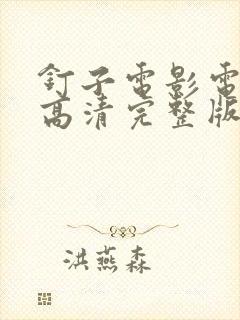 釘子電影電
高清完整版
洪燕森